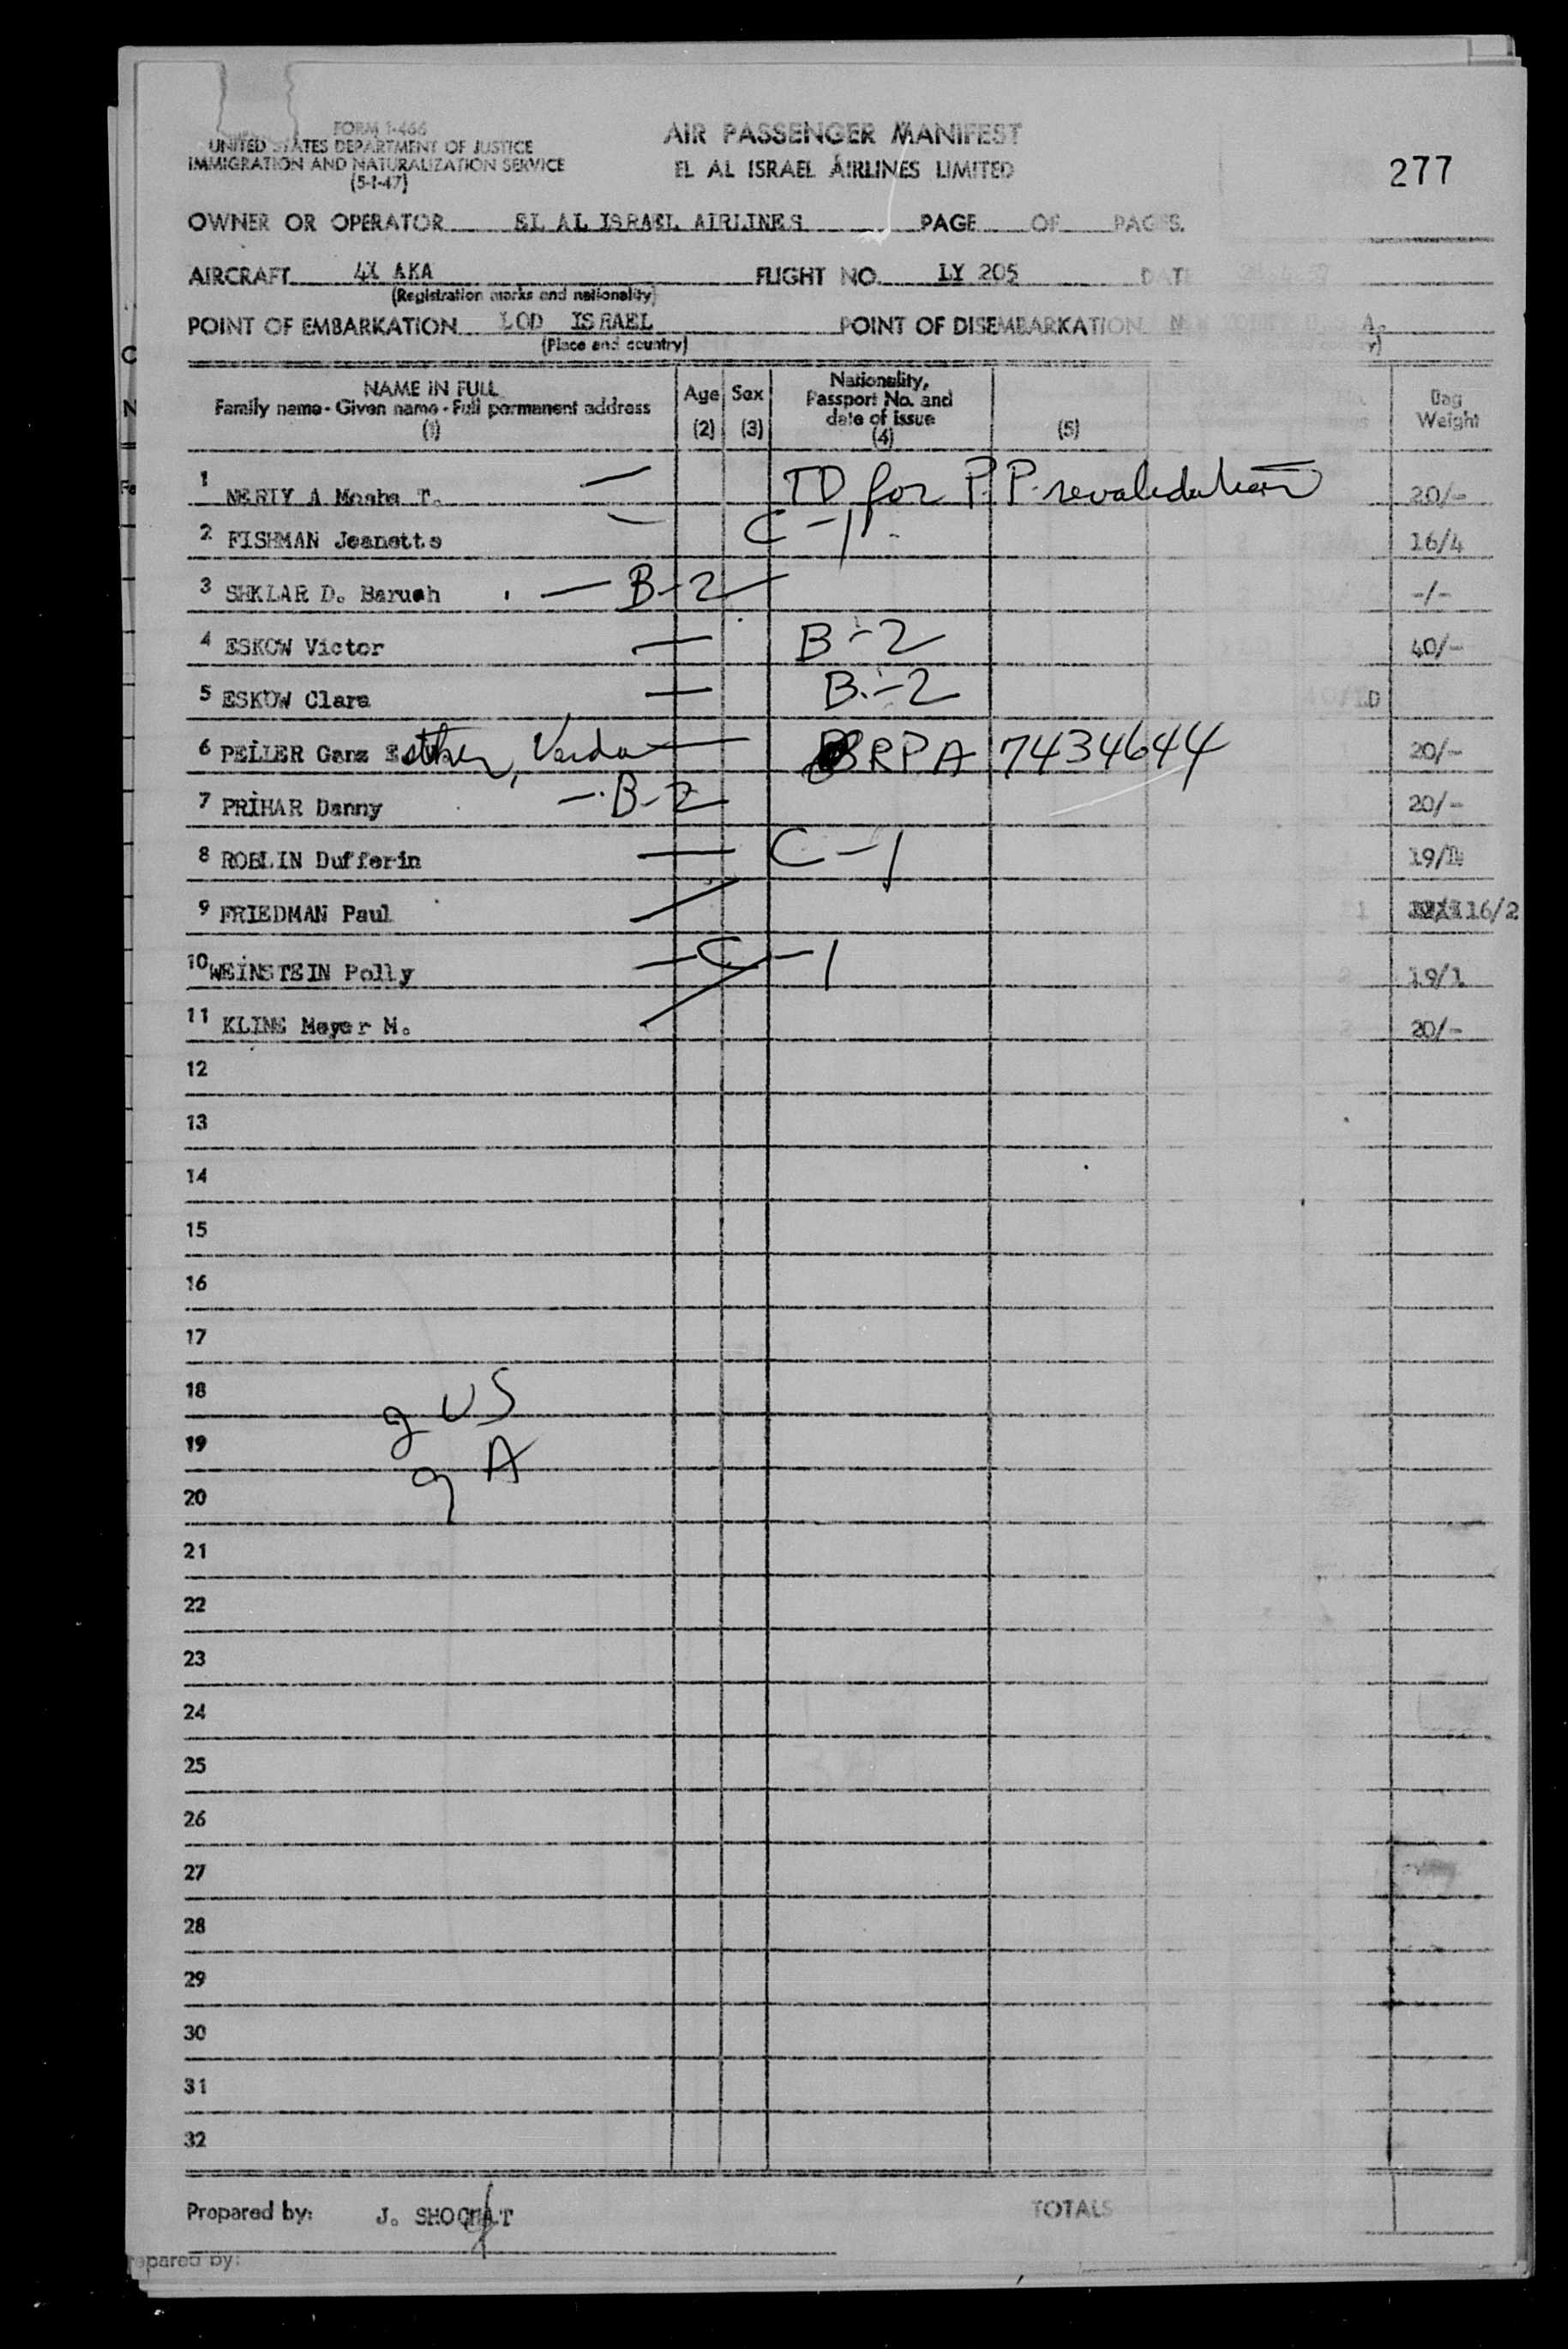 FORM I-466
UNITED STATES DEPARTMENT OF JUSTICE
IMMIGRATION AND NATURALIZATION SERVICE
(5-1-47)
AIR PASSENGER MANIFEST
EL AL ISRAEL AIRLINES LIMITED
277
OWNER OR OPERATOR EL AL ISRAEL AIRLINES PAGE OF PAGES.
AIRCRAFT 4X AKA FLIGHT NO. LY 205 DATE
(Registration marks and nationality)
POINT OF EMBARKATION LOD ISRAEL POINT OF DISEMBARKATION
(Place and country)
NAME IN FULL
Family name - Given name - Full permanent address
(1)
Age
(2)
Sex
(3)
Nationality,
Passport No. and
date of issue
(4)
(5)
Bag
Weight
1 NERIY A Moshe T. — TD for P.P. revalidation 20/-
2 FISHMAN Jeanette — C-1 16/4
3 SHKLAR D. Baruch — B-2 -/-
4 ESKOW Victor — B-2 40/-
5 ESKOW Clara — B-2
6 PELLER Ganz Esther, Verda — RPA 7434644 20/-
7 PRIHAR Danny — B-2 20/-
8 ROBLIN Dufferin — C-1 19/
9 FRIEDMAN Paul 16/2
10 WEINSTEIN Polly — C-1 19/1
11 KLINE Meyer M. 20/-
12
13
14
15
16
17
18
2 US
19
9 A
20
21
22
23
24
25
26
27
28
29
30
31
32
Prepared by: J. SHOCHAT TOTALS
repared by: